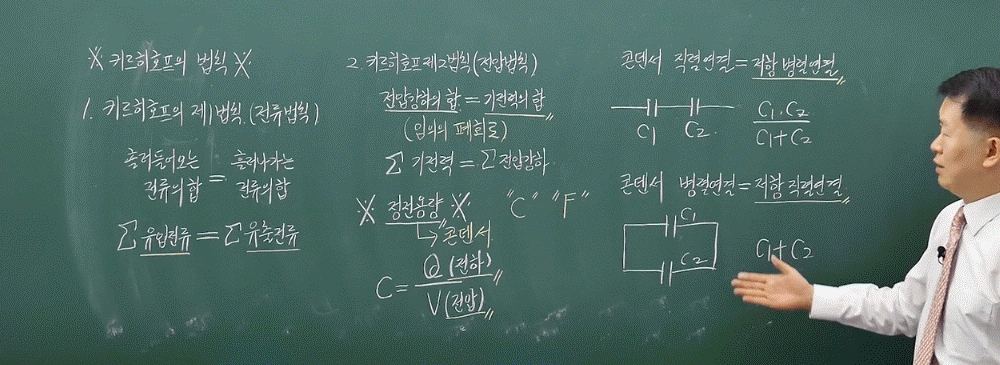 ※ 키르히호프의 법칙 ※
1. 키르히호프의 제1법칙 (전류법칙)
흘러들어오는 전류의 합 = 흘러나가는 전류의 합
∑ 유입전류 = ∑ 유출전류
2. 키르히호프 제2법칙 (전압법칙)
전압강하의 합 = 기전력의 합
(임의의 폐회로)
∑ 기전력 = ∑ 전압강하
※ 정전용량 ※ "C" "F"
↳ 콘덴서
C = Q (전하) / V (전압)
콘덴서 직렬연결 = 저항 병렬연결
C₁ C₂
C₁·C₂ / C₁+C₂
콘덴서 병렬연결 = 저항 직렬연결
C₁
C₂
C₁+C₂